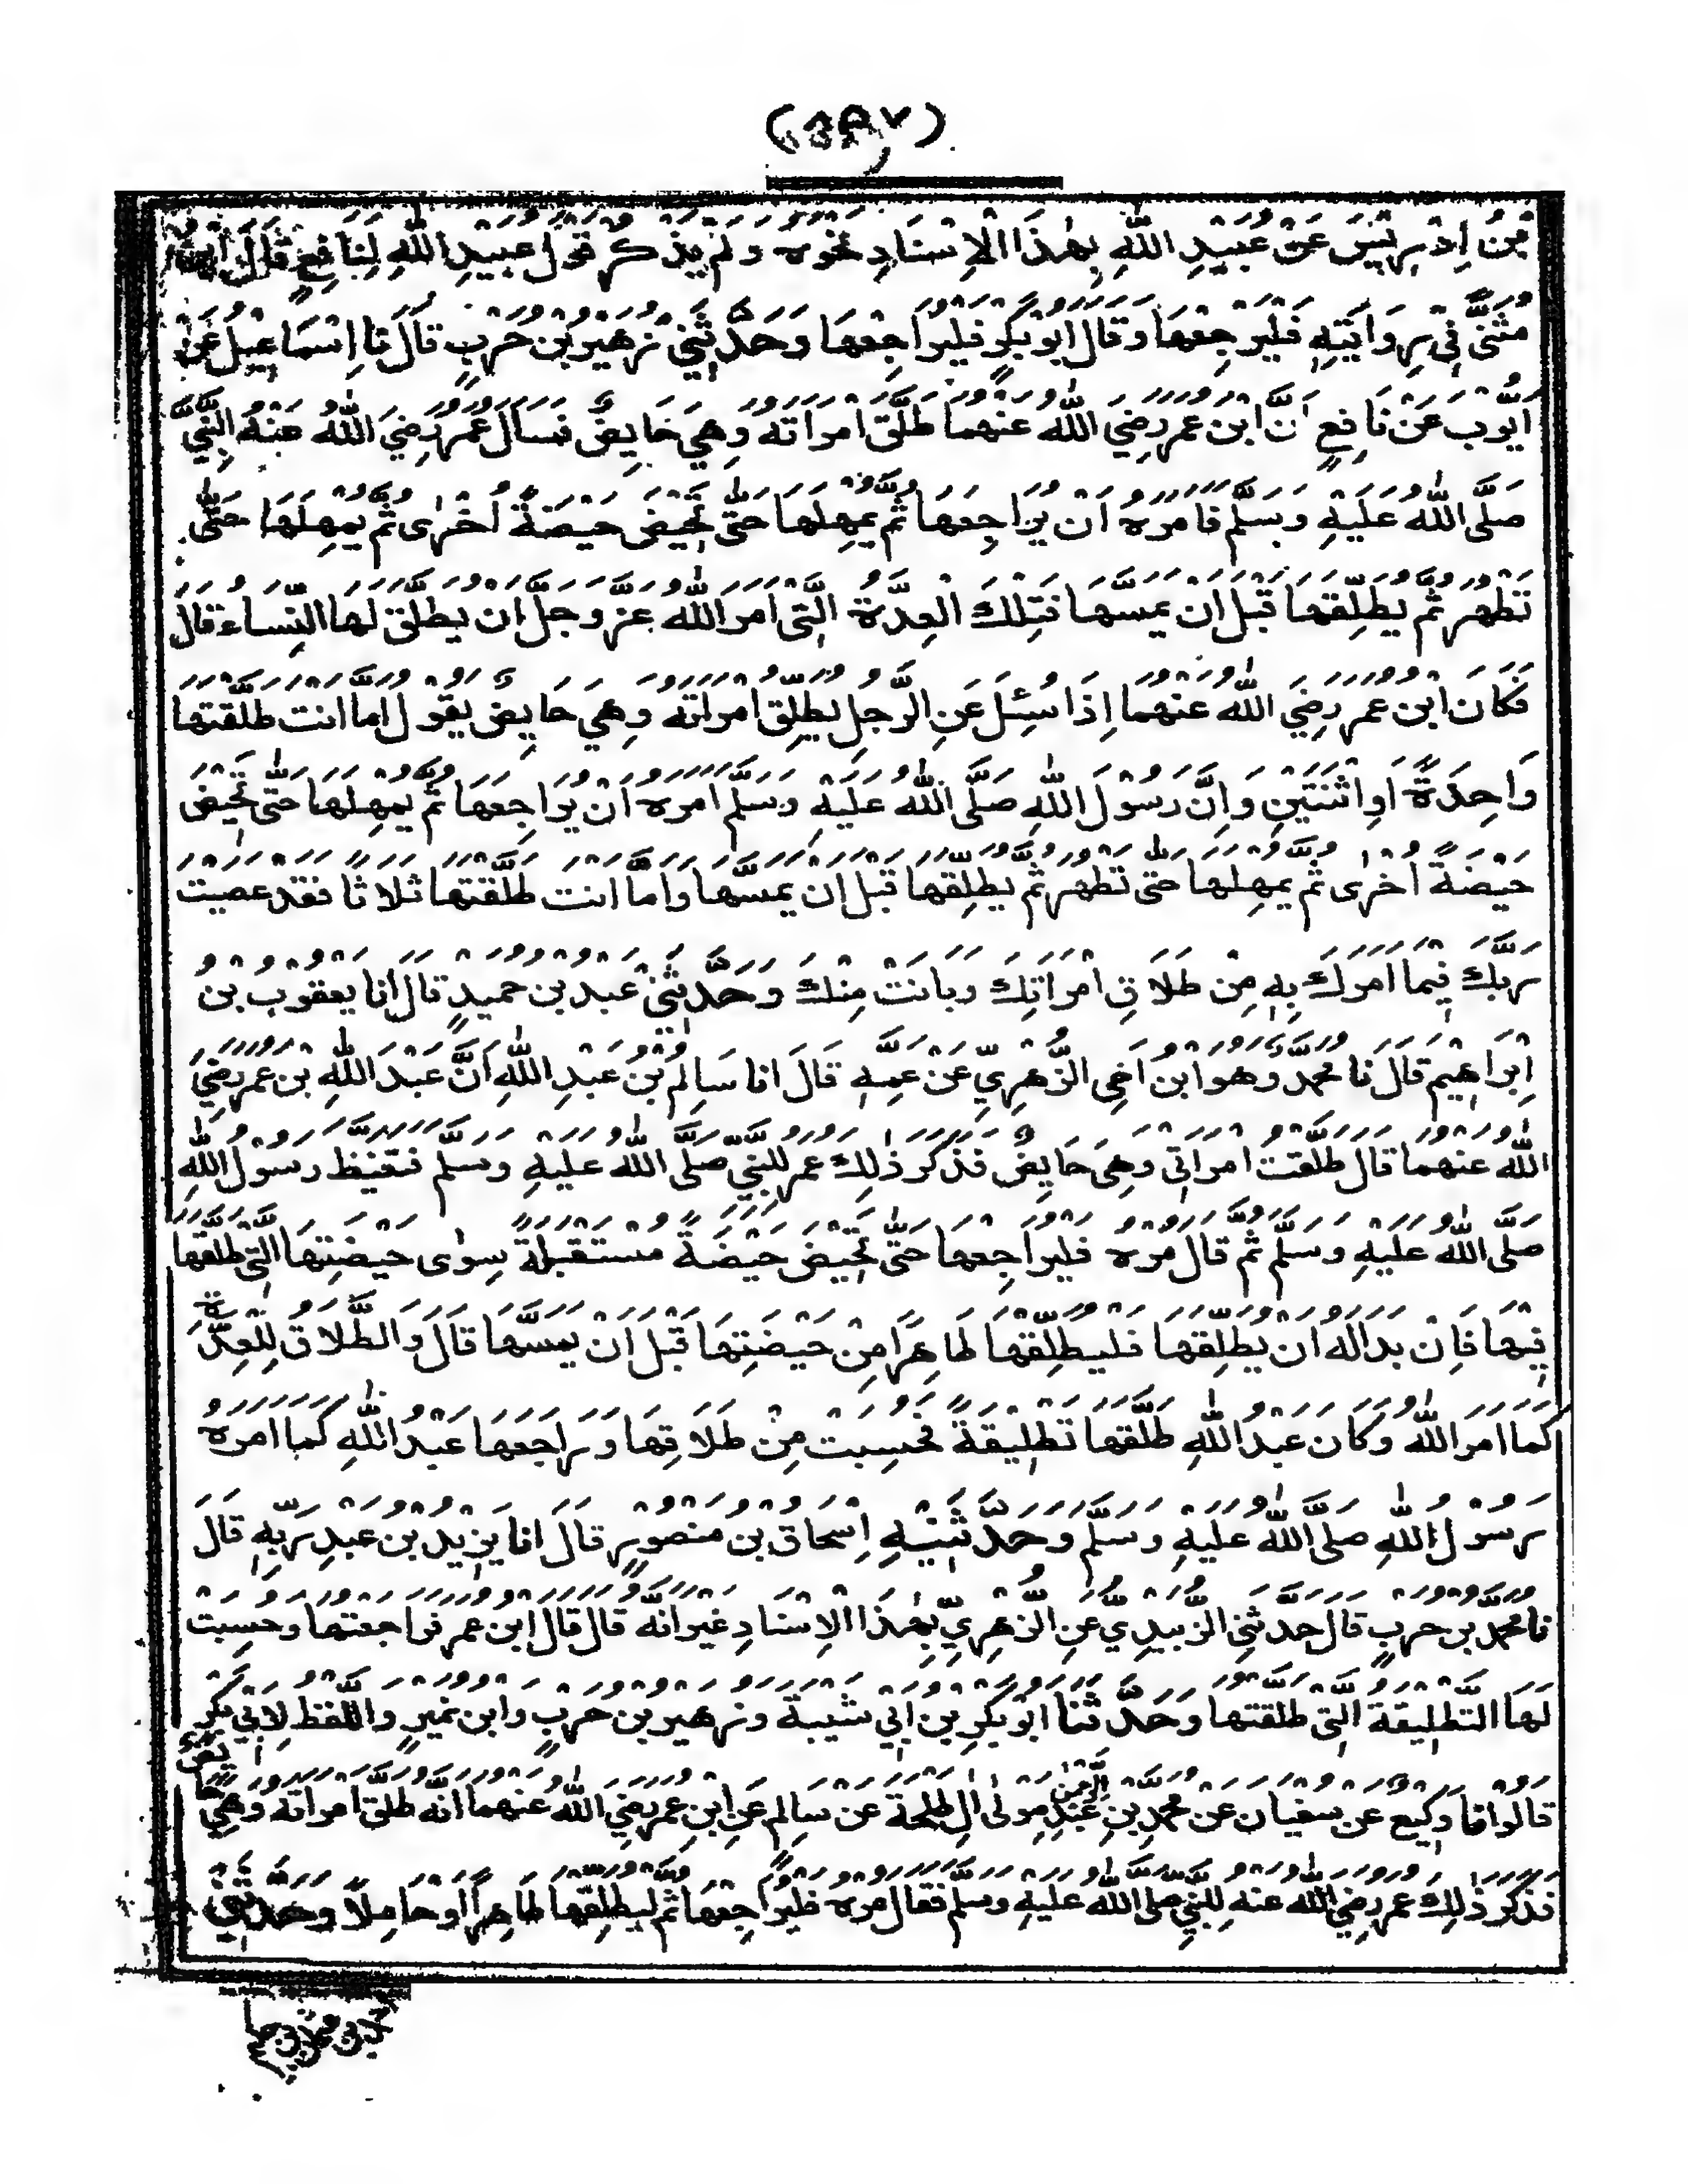 بْنُ إِدْرِيْسَ عَنْ عُبَيْدِ اللهِ بِهٰذَا الْاِسْنَادِ نَحْوَهُ وَلَمْ يَذْكُرْ قَوْلَ عُبَيْدِ اللهِ لِنَافِعٍ قَالَ ابْنُ
مُثَنَّى فِيْ رِوَايَتِهِ فَلْيَرْجِعْهَا وَقَالَ اَبُوْ بَكْرٍ فَلْيُرَاجِعْهَا وَحَدَّثَنِيْ زُهَيْرُ بْنُ حَرْبٍ قَالَ نَا اِسْمَاعِيْلُ عَنْ
اَيُّوْبَ عَنْ نَافِعٍ اَنَّ ابْنَ عُمَرَ رَضِيَ اللهُ عَنْهُمَا طَلَّقَ امْرَاَتَهُ وَهِيَ حَايِضٌ فَسَاَلَ عُمَرُ رَضِيَ اللهُ عَنْهُ النَّبِيَّ
صَلَّى اللهُ عَلَيْهِ وَسَلَّمَ فَاَمَرَهُ اَنْ يُرَاجِعَهَا ثُمَّ يُمْهِلَهَا حَتّٰى تَحِيْضَ حَيْضَةً اُخْرٰى ثُمَّ يُمْهِلَهَا حَتّٰى
تَطْهُرَ ثُمَّ يُطَلِّقَهَا قَبْلَ اَنْ يَمَسَّهَا فَتِلْكَ الْعِدَّةُ الَّتِى اَمَرَ اللهُ عَزَّ وَجَلَّ اَنْ يُطَلَّقَ لَهَا النِّسَاءُ قَالَ
فَكَانَ ابْنُ عُمَرَ رَضِيَ اللهُ عَنْهُمَا اِذَا سُئِلَ عَنِ الرَّجُلِ يُطَلِّقُ امْرَاَتَهُ وَهِيَ حَايِضٌ يَقُوْلُ اَمَّا اَنْتَ طَلَّقْتَهَا
وَاحِدَةً اَوِ اثْنَتَيْنِ وَاِنَّ رَسُوْلَ اللهِ صَلَّى اللهُ عَلَيْهِ وَسَلَّمَ اَمَرَهُ اَنْ يُرَاجِعَهَا ثُمَّ يُمْهِلَهَا حَتّٰى تَحِيْضَ
حَيْضَةً اُخْرٰى ثُمَّ يُمْهِلَهَا حَتّٰى تَطْهُرَ ثُمَّ يُطَلِّقَهَا قَبْلَ اَنْ يَمَسَّهَا وَاَمَّا اَنْتَ طَلَّقْتَهَا ثَلَاثًا فَقَدْ عَصَيْتَ
رَبَّكَ فِيْمَا اَمَرَكَ بِهِ مِنْ طَلَاقِ امْرَاَتِكَ وَبَانَتْ مِنْكَ وَحَدَّثَنِيْ عَبْدُ بْنُ حُمَيْدٍ قَالَ اَنَا يَعْقُوْبُ بْنُ
اِبْرَاهِيْمَ قَالَ نَا مُحَمَّدٌ وَهُوَ ابْنُ اَخِى الزُّهْرِيِّ عَنْ عَمِّهِ قَالَ اَنَا سَالِمُ بْنُ عَبْدِ اللهِ اَنَّ عَبْدَ اللهِ بْنَ عُمَرَ رَضِيَ
اللهُ عَنْهُمَا قَالَ طَلَّقْتُ امْرَاَتِى وَهِيَ حَايِضٌ فَذَكَرَ ذٰلِكَ عُمَرُ لِلنَّبِيِّ صَلَّى اللهُ عَلَيْهِ وَسَلَّمَ فَتَغَيَّظَ رَسُوْلُ اللهِ
صَلَّى اللهُ عَلَيْهِ وَسَلَّمَ ثُمَّ قَالَ مُرْهُ فَلْيُرَاجِعْهَا حَتّٰى تَحِيْضَ حَيْضَةً مُسْتَقْبَلَةً سِوٰى حَيْضَتِهَا الَّتِى طَلَّقَهَا
فِيْهَا فَاِنْ بَدَا لَهُ اَنْ يُطَلِّقَهَا فَلْيُطَلِّقْهَا طَاهِرًا مِنْ حَيْضَتِهَا قَبْلَ اَنْ يَمَسَّهَا قَالَ وَالطَّلَاقُ لِلْعِدَّةِ
كَمَا اَمَرَ اللهُ وَكَانَ عَبْدُ اللهِ طَلَّقَهَا تَطْلِيْقَةً فَحُسِبَتْ مِنْ طَلَاقِهَا وَرَاجَعَهَا عَبْدُ اللهِ كَمَا اَمَرَهُ
رَسُوْلُ اللهِ صَلَّى اللهُ عَلَيْهِ وَسَلَّمَ وَحَدَّثَنِيْهِ اِسْحَاقُ بْنُ مَنْصُوْرٍ قَالَ اَنَا يَزِيْدُ بْنُ عَبْدِ رَبِّهِ قَالَ
نَا مُحَمَّدُ بْنُ حَرْبٍ قَالَ حَدَّثَنِي الزُّبَيْدِيُّ عَنِ الزُّهْرِيِّ بِهٰذَا الْاِسْنَادِ غَيْرَ اَنَّهُ قَالَ قَالَ ابْنُ عُمَرَ فَرَاجَعْتُهَا وَحَسِبْتُ
لَهَا التَّطْلِيْقَةَ الَّتِى طَلَّقْتُهَا وَحَدَّثَنَا اَبُوْ بَكْرِ بْنُ اَبِيْ شَيْبَةَ وَزُهَيْرُ بْنُ حَرْبٍ وَابْنُ نُمَيْرٍ وَاللَّفْظُ لِاَبِيْ بَكْرٍ
قَالُوْا نَا وَكِيْعٌ عَنْ سُفْيَانَ عَنْ مُحَمَّدِ بْنِ عَبْدِ الرَّحْمٰنِ مَوْلٰى اٰلِ طَلْحَةَ عَنْ سَالِمٍ عَنِ ابْنِ عُمَرَ رَضِيَ اللهُ عَنْهُمَا اَنَّهُ طَلَّقَ امْرَاَتَهُ وَهِيَ حَايِضٌ
فَذَكَرَ ذٰلِكَ عُمَرُ رَضِيَ اللهُ عَنْهُ لِلنَّبِيِّ صَلَّى اللهُ عَلَيْهِ وَسَلَّمَ فَقَالَ مُرْهُ فَلْيُرَاجِعْهَا ثُمَّ لِيُطَلِّقْهَا طَاهِرًا اَوْ حَامِلًا وَحَدَّثَنِيْ